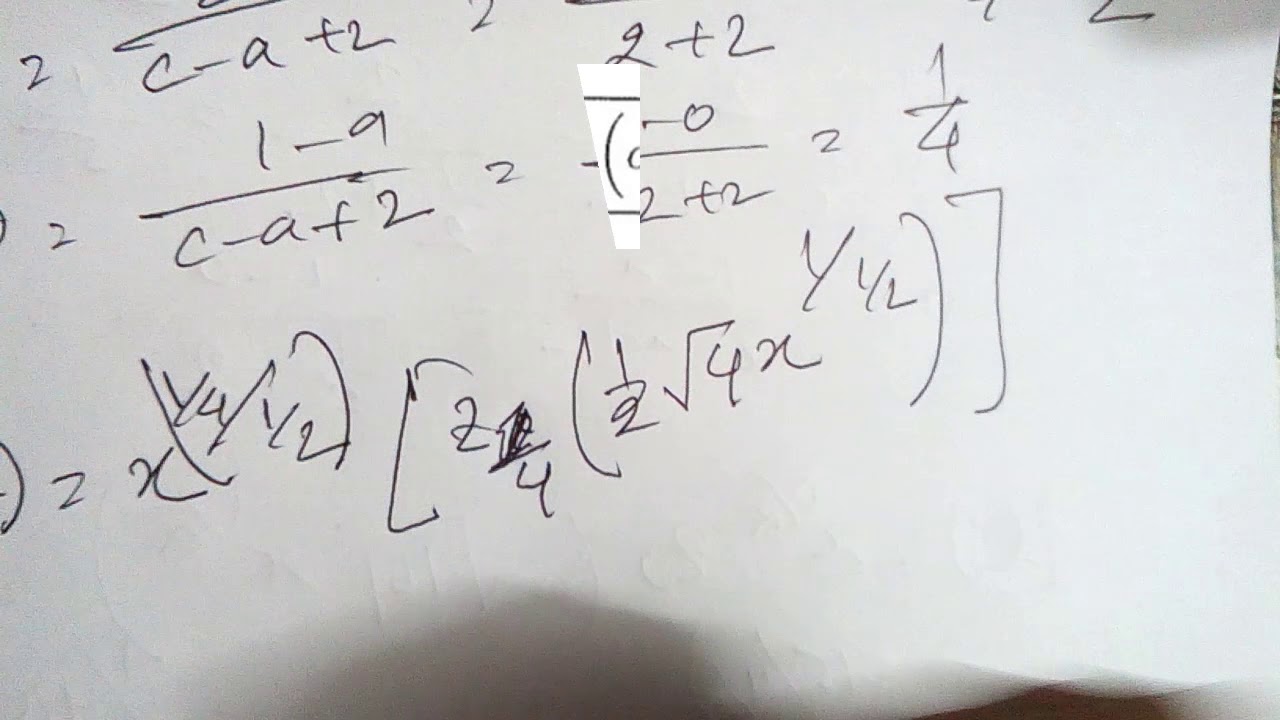 = c-a+2 = 2+2
= \frac{1-a}{c-a+2} = \frac{-0}{2+2} = \frac{1}{4}
) = x^{(1/4/1/2)} [ Z_{1/4} ( \frac{1}{2} \sqrt{4} x^{1/1/2} ) ]